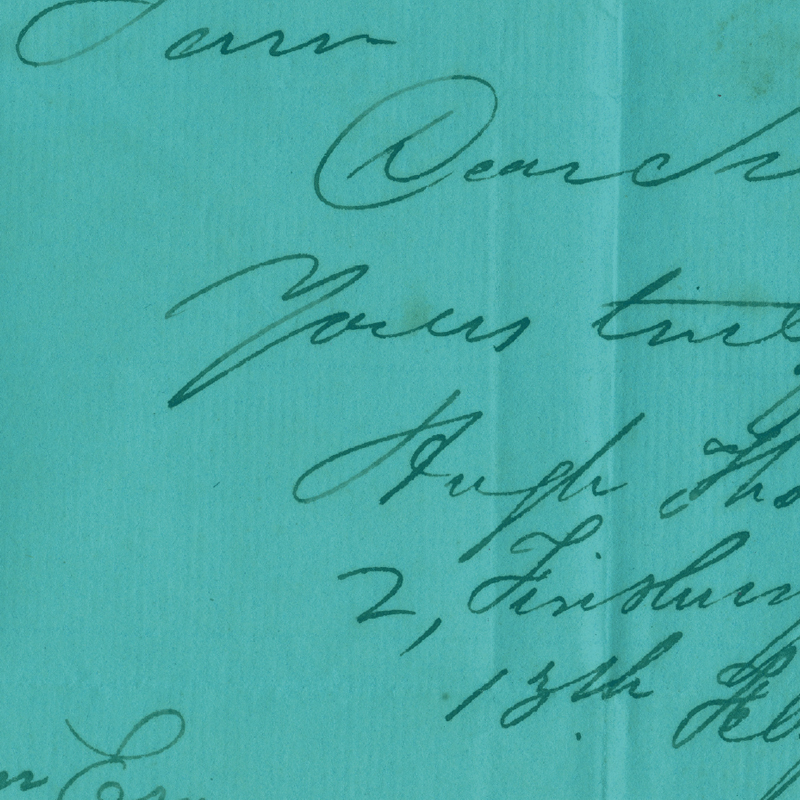 I am
Dear Sir
Yours trul
Hugh Tho
2, Finsbury
13th Feb
Esq